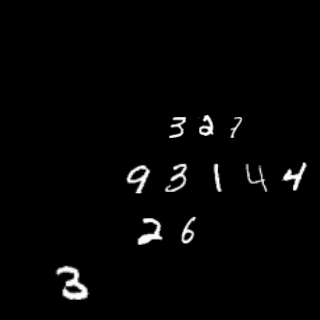 3 2 7
9 3 1 4 4
2 6
3